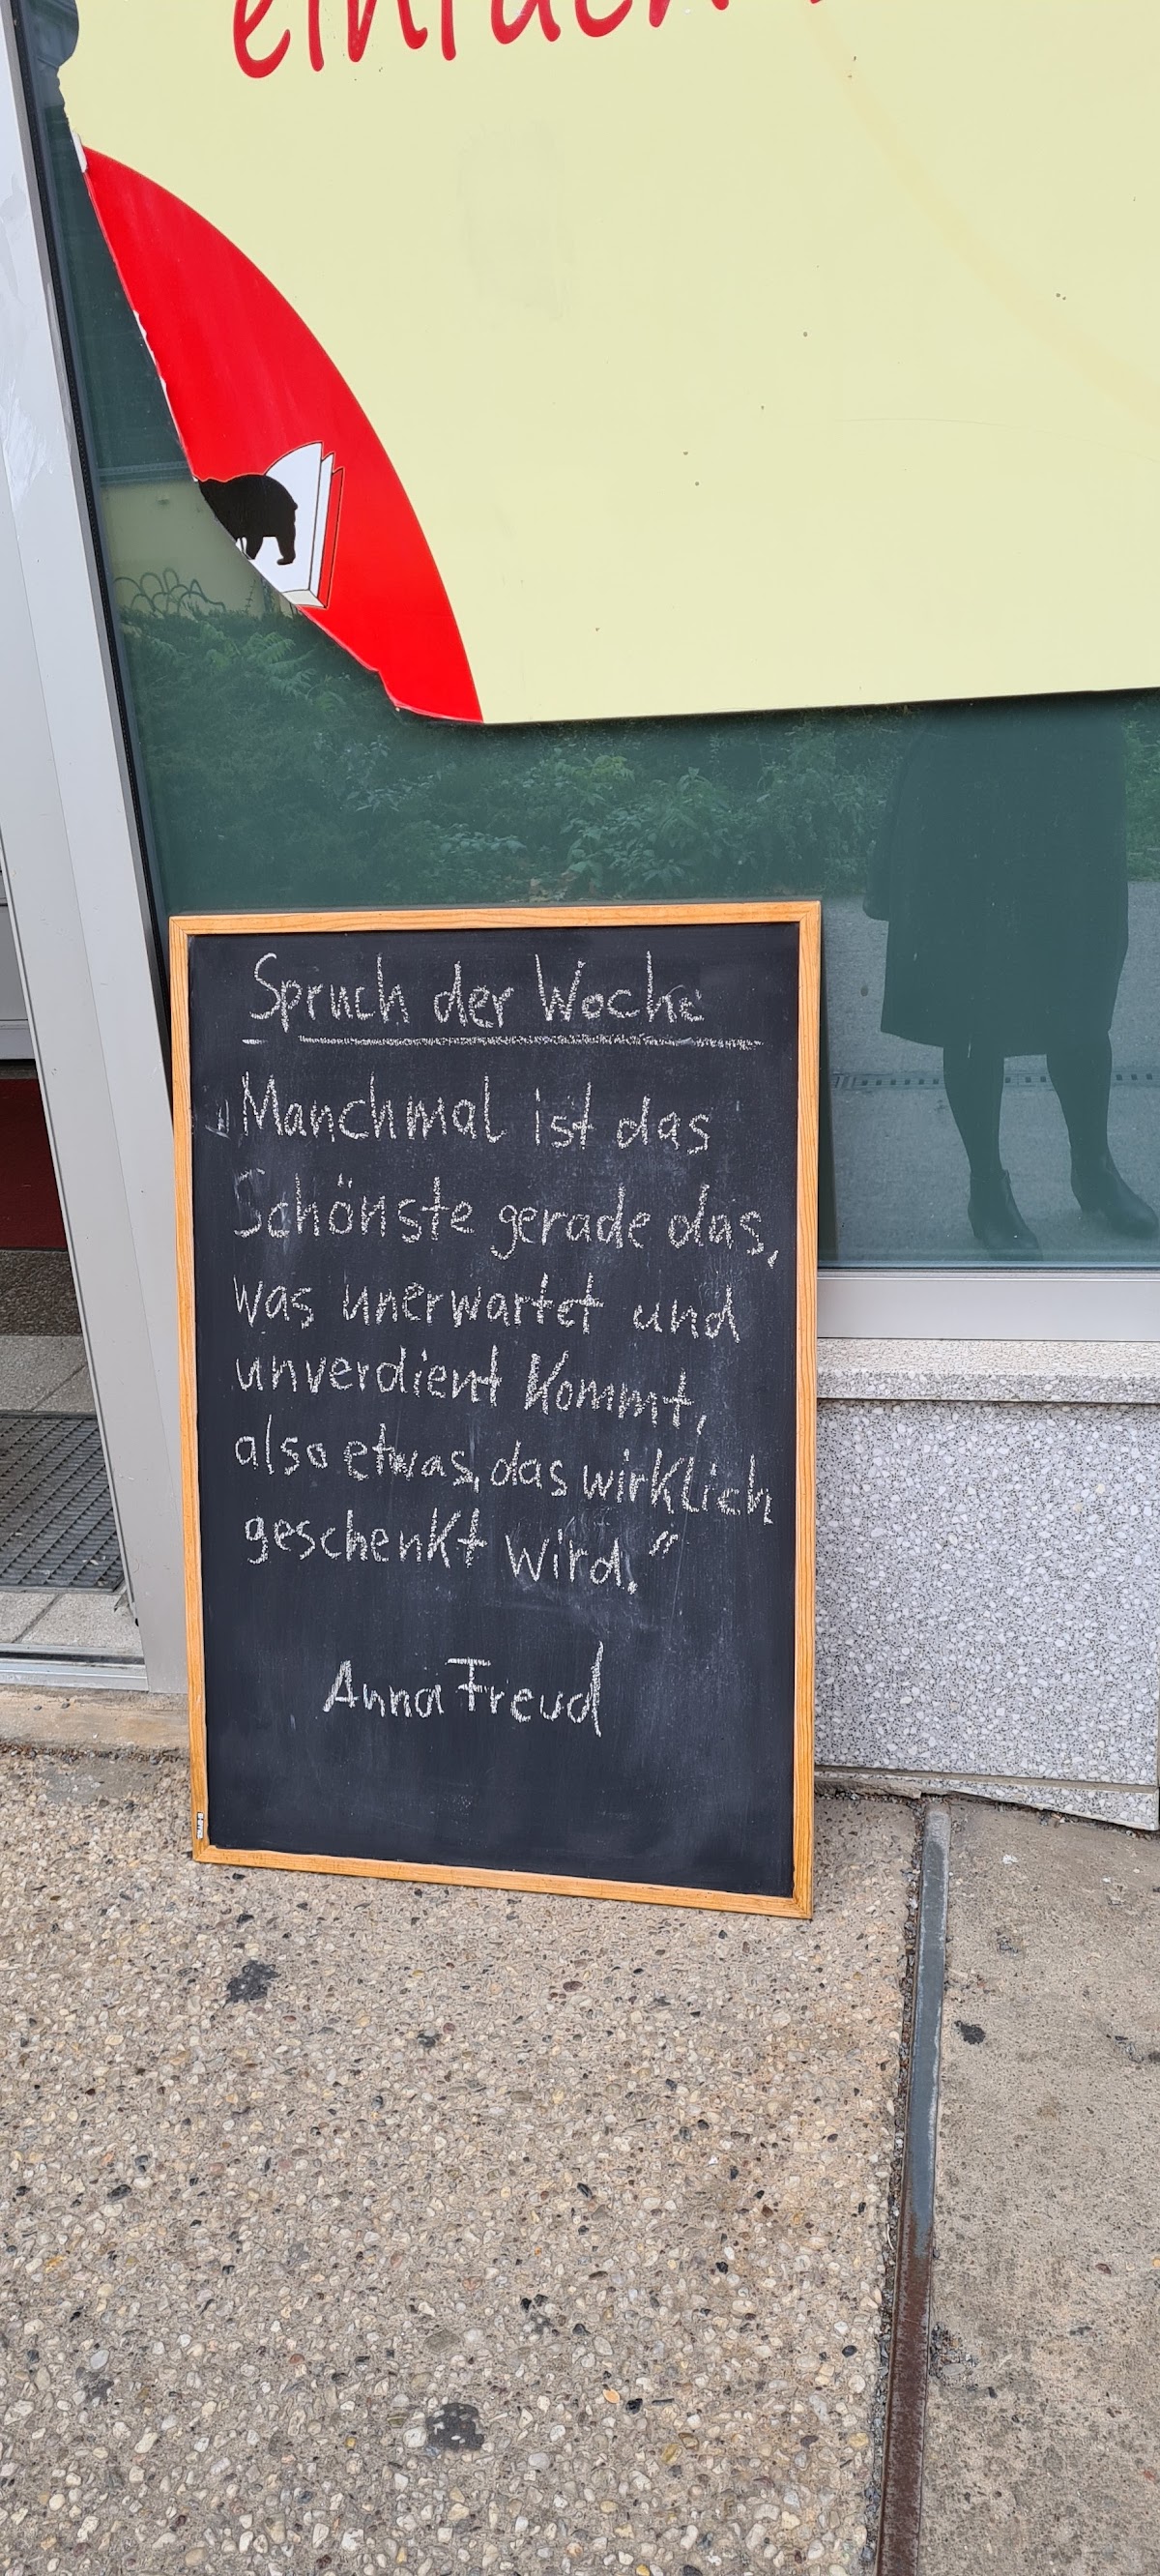 einfach
Spruch der Woche
"Manchmal ist das
Schönste gerade das,
was unerwartet und
unverdient kommt,
also etwas, das wirklich
geschenkt wird."
Anna Freud